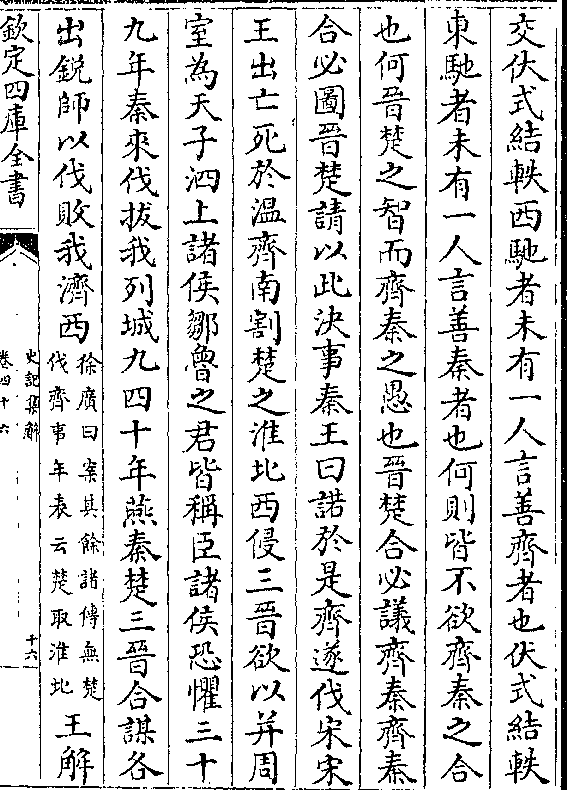 交伏式結軼西馳者未有一人言善齊者也伏式結軼
東馳者未有一人言善秦者也何則皆不欲齊秦之合
也何晉楚之智而齊秦之愚也晉楚合必議齊秦齊秦
合必圖晉楚請以此決事秦王曰諾於是齊遂伐宋宋
王出亡死於溫齊南割楚之淮北西侵三晉欲以并周
室為天子泗上諸侯鄒魯之君皆稱臣諸侯恐懼三十
九年秦來伐拔我列城九四十年燕秦楚三晉合謀各
出銳師以伐敗我濟西徐廣曰案其餘諸傳無楚伐齊事年表云楚取淮北王解
欽定四庫全書
史記集解
卷四十六
十六